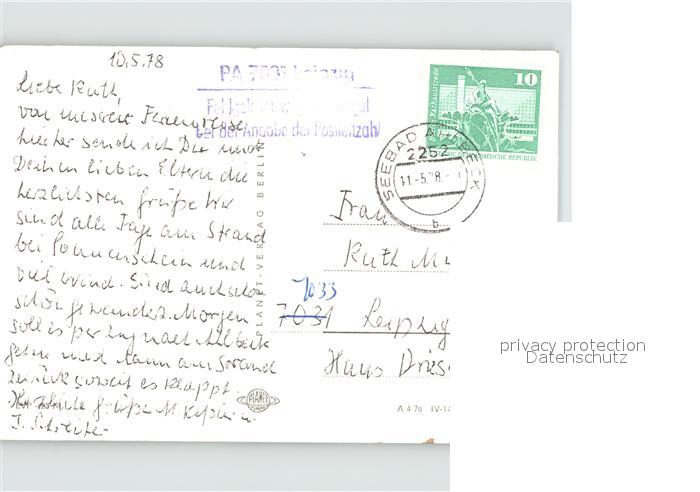 10.5.78
Liebe Ruth,
von unserer Ferienreise
hierher sende ich Dir und
Deinen lieben Eltern die
herzlichsten Grüße. Wir
sind alle Tage am Strand
bei Sonnenschein und
viel Wind. Sind auch schon
schön gewandert. Morgen
soll es per Zug nach Ahlbeck
gehn und dann am Strand
zurück soweit es klappt.
Herzliche Grüße M.
PA 7031 Leipzig
bei der Angabe der Postleitzahl
PLANET-VERLAG BERLIN
10
DEUTSCHE DEMOKRATISCHE REPUBLIK
SEEBAD AHLBECK
2252
11.-5.78.
b
Frau
Ruth
7033
7031 Leipzig
Hans Dries
PLANET
A 4 76 IV-14
privacy protection
Datenschutz